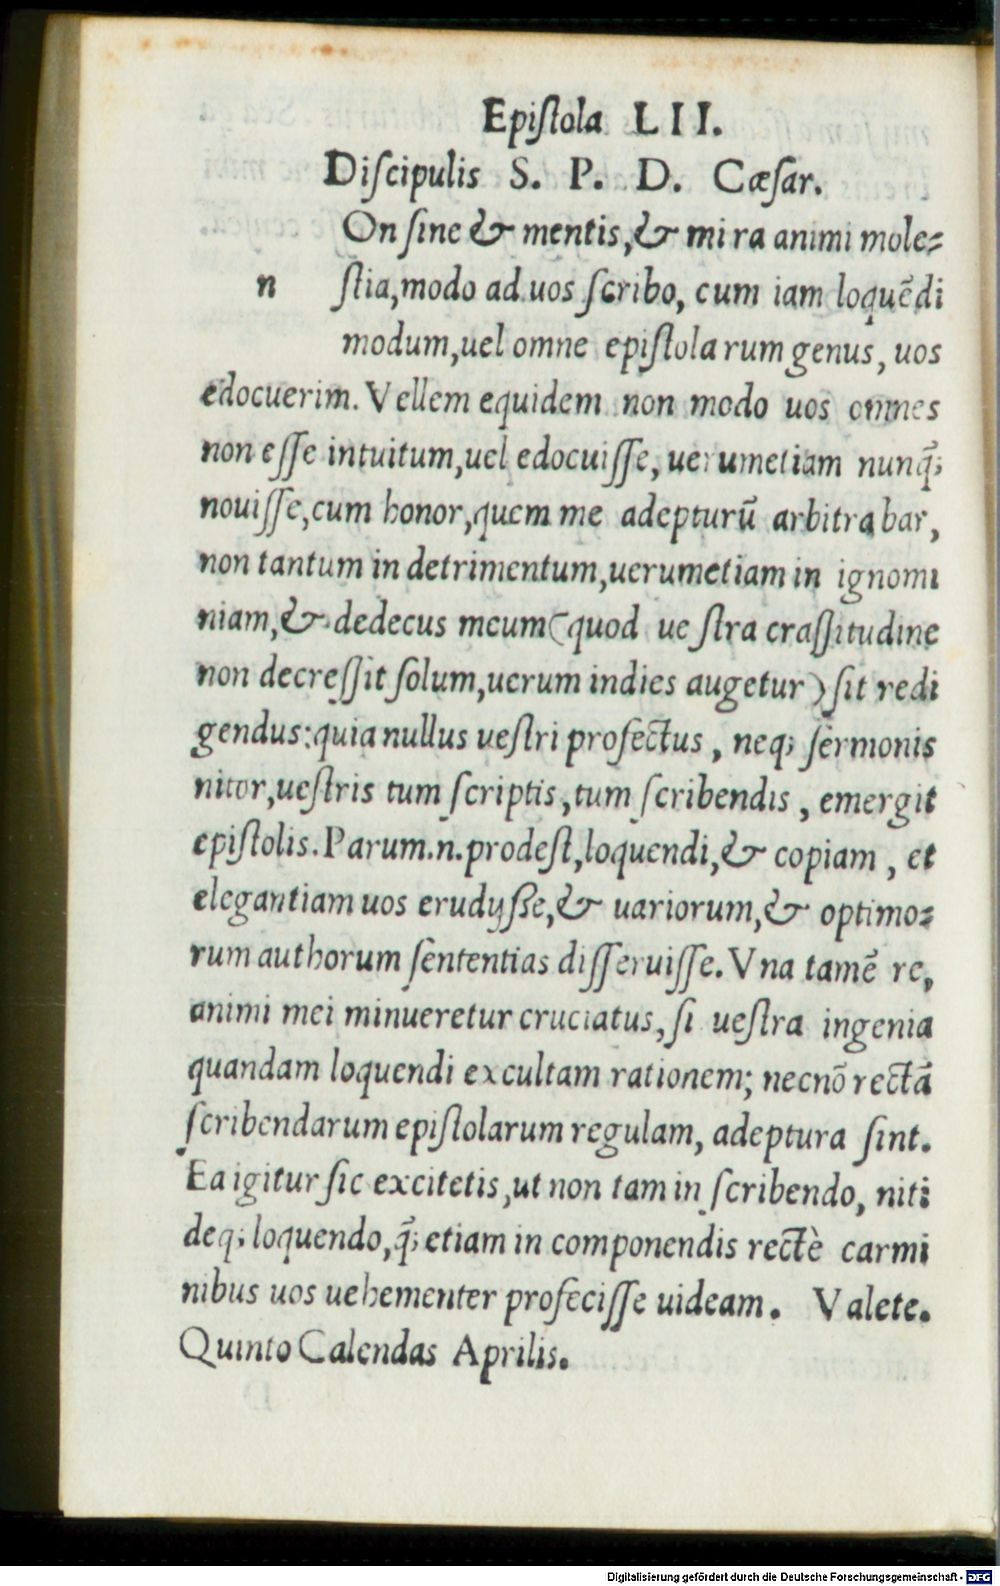 Epiſtola LII.
Diſcipulis S. P. D. Cæſar.
On ſine & mentis, & mira animi mole⸗
n ſtia, modo ad uos ſcribo, cum iam loquēdi
modum, uel omne epiſtolarum genus, uos
edocuerim. Vellem equidem non modo uos omnes
non eſſe intuitum, uel edocuiſſe, uerumetiam nunq̃;
nouiſſe, cum honor, quem me adepturū arbitrabar,
non tantum in detrimentum, uerumetiam in ignomi
niam, & dedecus meum (quod ueſtra craſſitudine
non decreſſit ſolum, uerum indies augetur) ſit redi
gendus: quia nullus ueſtri profectus, neq; ſermonis
nitor, ueſtris tum ſcriptis, tum ſcribendis, emergit
epiſtolis. Parum .n. prodeſt, loquendi, & copiam, et
elegantiam uos erudyſſe, & uariorum, & optimo⸗
rum authorum ſententias diſſeruiſſe. Vna tamē re,
animi mei minueretur cruciatus, ſi ueſtra ingenia
quandam loquendi excultam rationem; necnō rectā
ſcribendarum epiſtolarum regulam, adeptura ſint.
Ea igitur ſic excitetis, ut non tam in ſcribendo, niti
deq; loquendo, q̃; etiam in componendis rectè carmi
nibus uos uehementer profeciſſe uideam. Valete.
Quinto Calendas Aprilis.
Digitalisierung gefördert durch die Deutsche Forschungsgemeinschaft - DFG